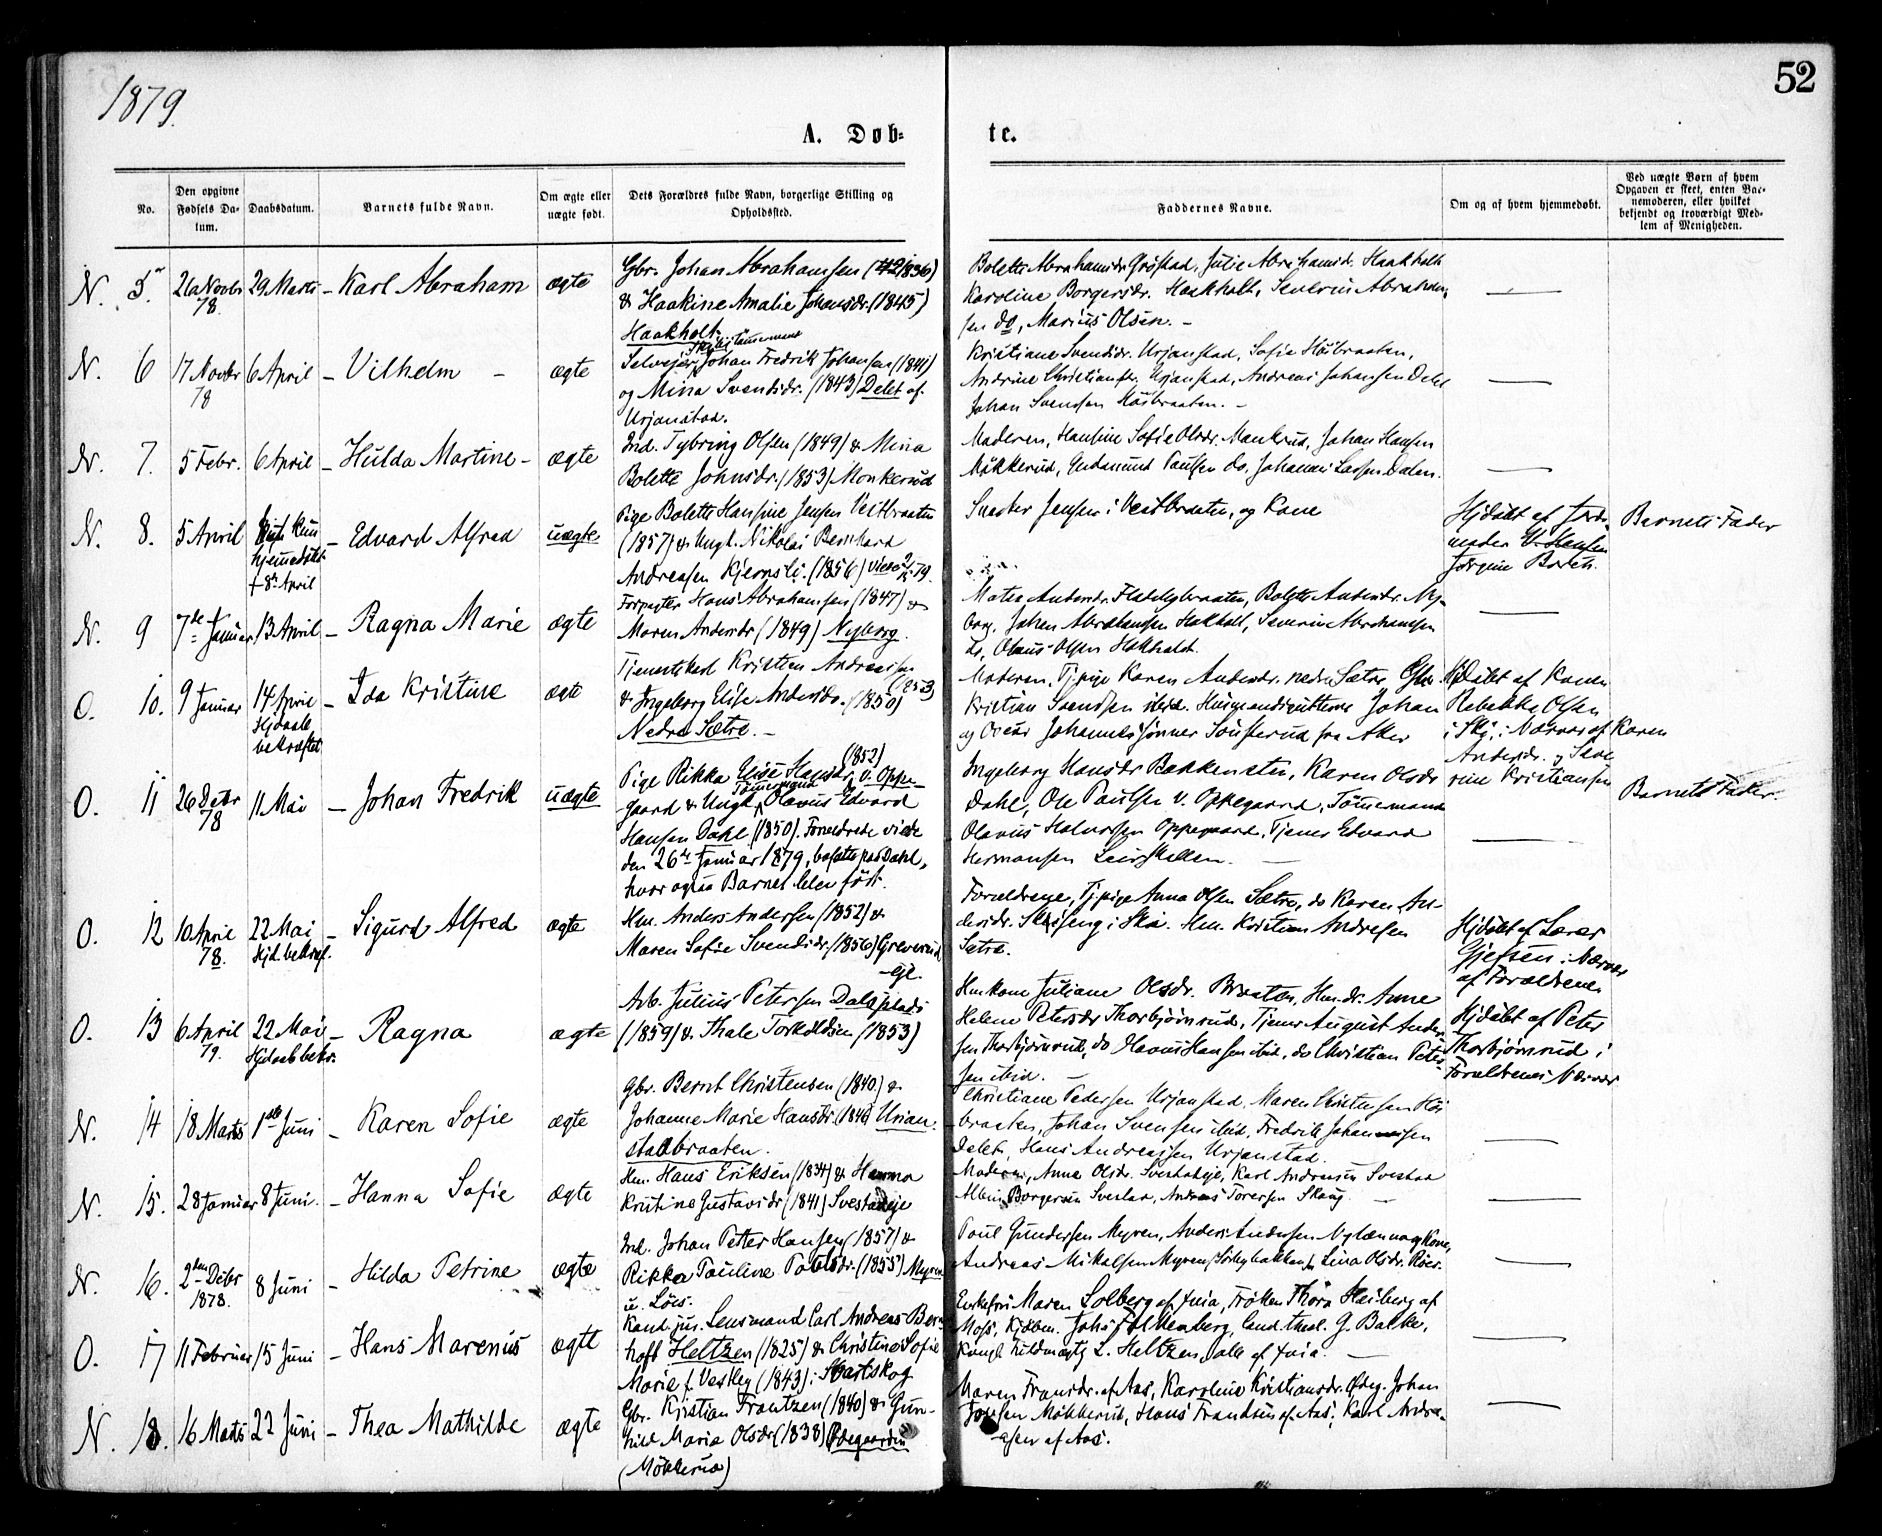 1879.
52
A. Døb-
te.
No.
Den opgivne Fødsels Da-
tum.
Daabsdatum.
Barnets fulde Navn.
Om ægte eller
uægte født.
Dets Forældres fulde Navn, borgerlige Stilling og
Opholdssted.
Faddernes Navne.
Om og af hvem hjemmedøbt.
Ved uægte Børn af hvem
Opgaven er skeet, enten Bar-
nemoderen, eller hvilket
bekjendt og troværdigt Med-
lem af Menigheden.
N. 5. 78. 29 Marts - Karl Abraham ægte
Gbr. Johan Abrahamsen
& Haakine Amalie Johansdr. (1845)
Haakholt.
Karoline Borgersdr. Haakholt, Severin Abraham-
sen do, Marius Olsen. -
N. 6 17 Novbr 78 6 April - Vilhelm - ægte
Selveier Johan Fredrik Johansen (1841)
og Mina Svendsdr. (1843) Delet af
Urjanstad.
Kristiane Svendsdr. Urjanstad, Sofie Høibraaten,
Andrine Urjanstad, Andreas Johansen Delet
Johan Svendsen Høibraaten. -
N. 7. 5 Febr. 6 April - Hulda Martine - ægte
Ind. Tybring Olsen (1849) & Mina
Bolette Johnsdr. (1853) Monkerud
Moderen, Hansine Sofie Olsdr. Monkrud, Johan Hansen
Møkkerud, Gudmund Paulsen do, Johannes Dalen.
N. 8. 5 April hjemmedøbt
† 8de April - Edvard Alfred uægte
Pige Bolette Hansine Jensen Vestbraaten
(1857) & Ungk. Nikolai Bernhard
Andreassen Kjernsli. (1856)
Jensen i Vestbraaten, og Kone
Hjdøbt af Jorde-
moder Hansen
Barnets Fader
N. 9 7de Januar 13 April - Ragna Marie ægte
Forpagter Hans Abrahamsen (1847) &
Maren Andersdr (1849) Nyborg.
Andersdr. Bolette Andersdr. Ny-
borg, Johan Abrahamsen Hakholt, Severin Abrahamsen
do, Olaus Olsen Hakholt.
O. 10. 9 Januar 14 April
Hjdaab
bekræftet - Ida Kristine ægte
Tjenestekarl Kristian Andreassen (1853)
& Ingeborg Elise Andersdr. (1850)
Nedre Sætre. -
Moderen, Tj.pige Karen Andersdr. nedre Sætre,
Kristian Svendsen ibid. Johan
og Oscar Johannessønner fra Aker
Hjdøbt af Konen
Rebekka Olsen
i Ski, i Nærvær af Karen
Andersdr. og
Kristiansen
O. 11 26 Debr 78 11 Mai - Johan Fredrik uægte
Pige Rikka Elise Hansdr (1852) v. Oppe-
gaard & Ungk. Tømmermand Olavus Edvard
Hansen Dahl (1850). Forældrene viede
den 26de Januar 1879, bosatte paa Dahl,
hvor ogsaa Barnet blev født.
Ingeborg Hansdr Bakkensten, Karen Olsdr
Dahl, Ole Paulsen v. Oppegaard, Tømmermand
Olavus Halvorsen Oppegaard, Tjener Edvard
Hermansen
Barnets Fader.
O. 12 10 April 78. 22 Mai
Hjd. bekræf. - Sigurd Alfred ægte
Hm. Anders Andersen (1852) &
Maren Sofie Svendsdr. (1856) Greverud
- eje.
Forældrene, Tj.pige Anna Olsen Sætre, do Karen An-
dersdr. i Ski. Hm. Kristian Andresen
Sætre.
Hjdøbt af Lærer
Gjefsen i Nærvær
af Forældrene
O. 13 6 April 79. 22 Mai
Hjdaab bekr. - Ragna ægte
Arb. Julius Petersen Dalsplads
(1859) & Thale Torkildsen (1853)
Hm.kone Juliane Olsdr. Braaten, Hm.dr. Anne
Helene Petersdr Thorbjørnrud, Tjener August Ander-
sen Thorbjørnrud, do Hansen ibid, do Christian Peter-
sen ibid. -
Hjdøbt af Peter
Thorbjørnrud i
Forældrenes Nærvær
N. 14 18 Marts 1ste Juni - Karen Sofie ægte
Gbr. Bernt Christensen (1840) &
Johanne Marie Hansdr. Urian-
stadbraaten.
Christiane Pedersen Urjanstad, Maren Christensen Høi-
braaten, Johan Svensen ibid, Fredrik Johannessen
Delet, Hans Andreassen Urjanstad.
N. 15. 28 Januar 8 Juni. - Hanna Sofie ægte
Hm. Hans Eriksen (1834) & Hanna
Kristine Gustavsdr (1841) Svestadeje
Moderen, Anna Olsdr. Svestadeje, Karl Andersen Svestad
Borgersen Svestad, Andreas Toresen Skaug. -
N. 16. 2den Debr 1878. 8 Juni - Hilda Petrine ægte
Ind. Johan Petter Hansen (1857) &
Rikka Pauline Paulsdr. (1855) Myren
Poul Gundersen Myren, Anders Andersen og Kone,
Andreas Mikalsen Myren, Lina Olsdr.
O. 17 11 Februar 15 Juni - Hans Marenius ægte
Kand. jur. Lensmand Carl Andreas Bern-
hoft Heltzen (1825) & Christine Sofie
Marie f. Vestby (1843) i Svartskog
Enkefru Maren Solberg af Xnia, Frøken Thora Heiberg af
Moss, Kjøbm. Johs Falkenberg, Cand. theol. G. Balke,
L. Heltzen, alle af Xnia. -
N. 18. 16 Marts 22 Juni - Thea Mathilde ægte
Gbr. Kristian Frantzen (1840) & Gun-
hild Maria Olsdr (1838) Ødegaarden
(Møkkerud)
Maren Fransdr. af Aas, Karoline Kristiansdr. Ødeg. Johan
Møkkerud, Hans Frandsen af Aas, Karl Andre-
asen af Aas.